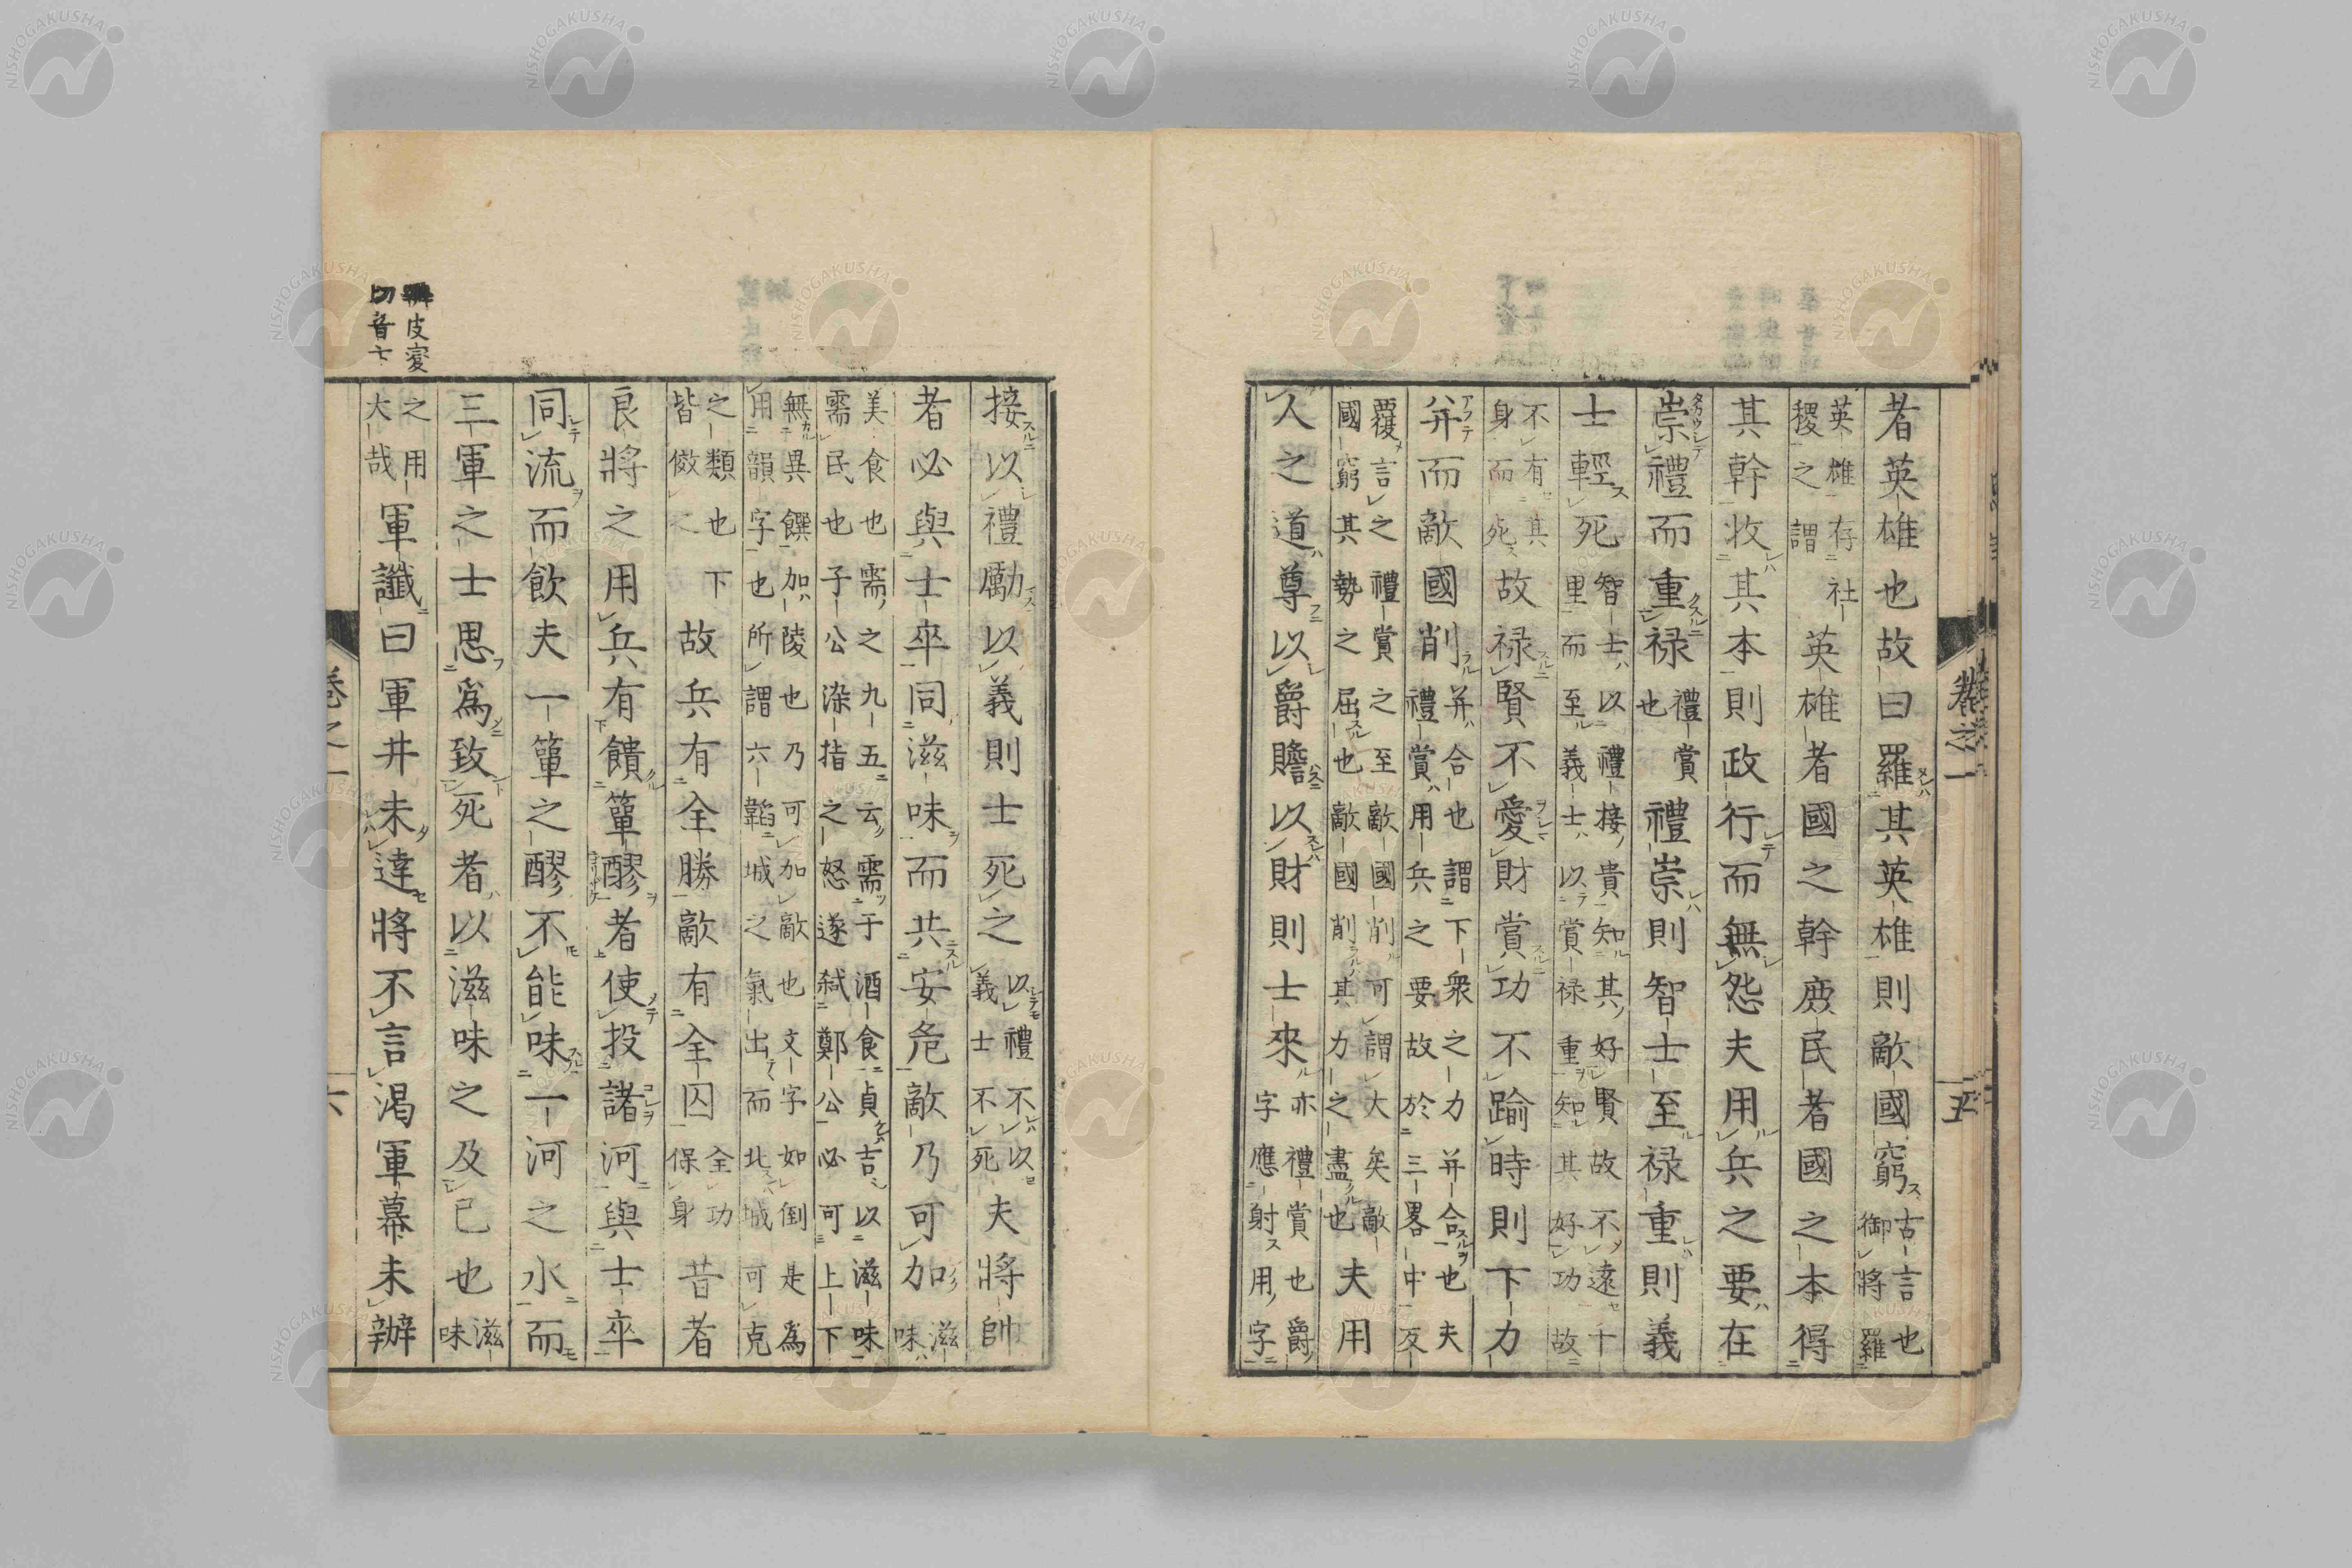 卷之一 五
者英雄也故曰羅其英雄則敵國窮古言也御將羅
英雄存社稷之謂英雄者國之幹庶民者國之本得
其幹收其本則政行而無怨夫用兵之要在
崇禮而重祿禮賞也禮崇則智士至祿重則義
士輕死智士以禮接貴知其好賢故不遠千里而至義士以賞祿重知其好功故
不有其身而死故祿賢不愛財賞功不踰時則下力
并而敵國削并合也謂下衆之力并合也夫禮賞用兵之要故於三畧中反
覆言之禮賞之至敵國削可謂大矣敵國窮其勢之屈也敵國削其力之盡也夫用
人之道尊以爵贍以財則士來亦禮賞也爵字應射用字
接以禮勵以義則士死之以禮不以義士不死夫將帥
者必與士卒同滋味而共安危敵乃可加滋味
美食也需之九五云需于酒食貞吉以滋味需民也子公染指之怒遂弑鄭公必可上下
無異饌加陵也乃可加敵也文字如倒是為用韻字也所謂六韜城之氣出而北城可克
之類也下皆倣之故兵有全勝敵有全囚全功保身昔者
良將之用兵有饋簞醪者使投諸河與士卒
同流而飲夫一簞之醪不能味一河之水而
三軍之士思爲致死者以滋味之及己也滋味
之用大哉軍讖曰軍井未達將不言渴軍幕未辦
皮変
切音士
卷之一 六
NISHOGAKUSHA